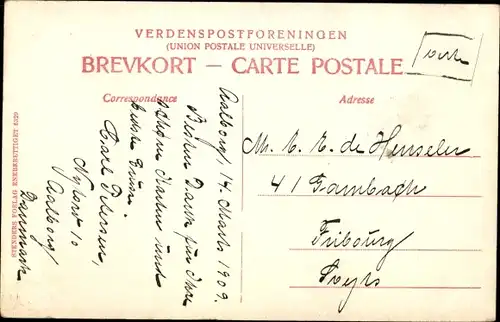 VERDENSPOSTFORENINGEN
(UNION POSTALE UNIVERSELLE)
BREVKORT — CARTE POSTALE
Correspondance
Adresse
Aalborg 14. Marts 1909.
Besten Dank für Ihre
schöne Karten und
Carl Petersen,
Nybro 10
Aalborg
Danmark
M. C. E. de Henseler
41 Gambach
Fribourg
STENDERS FORLAG ENEBERETTIGET 8229